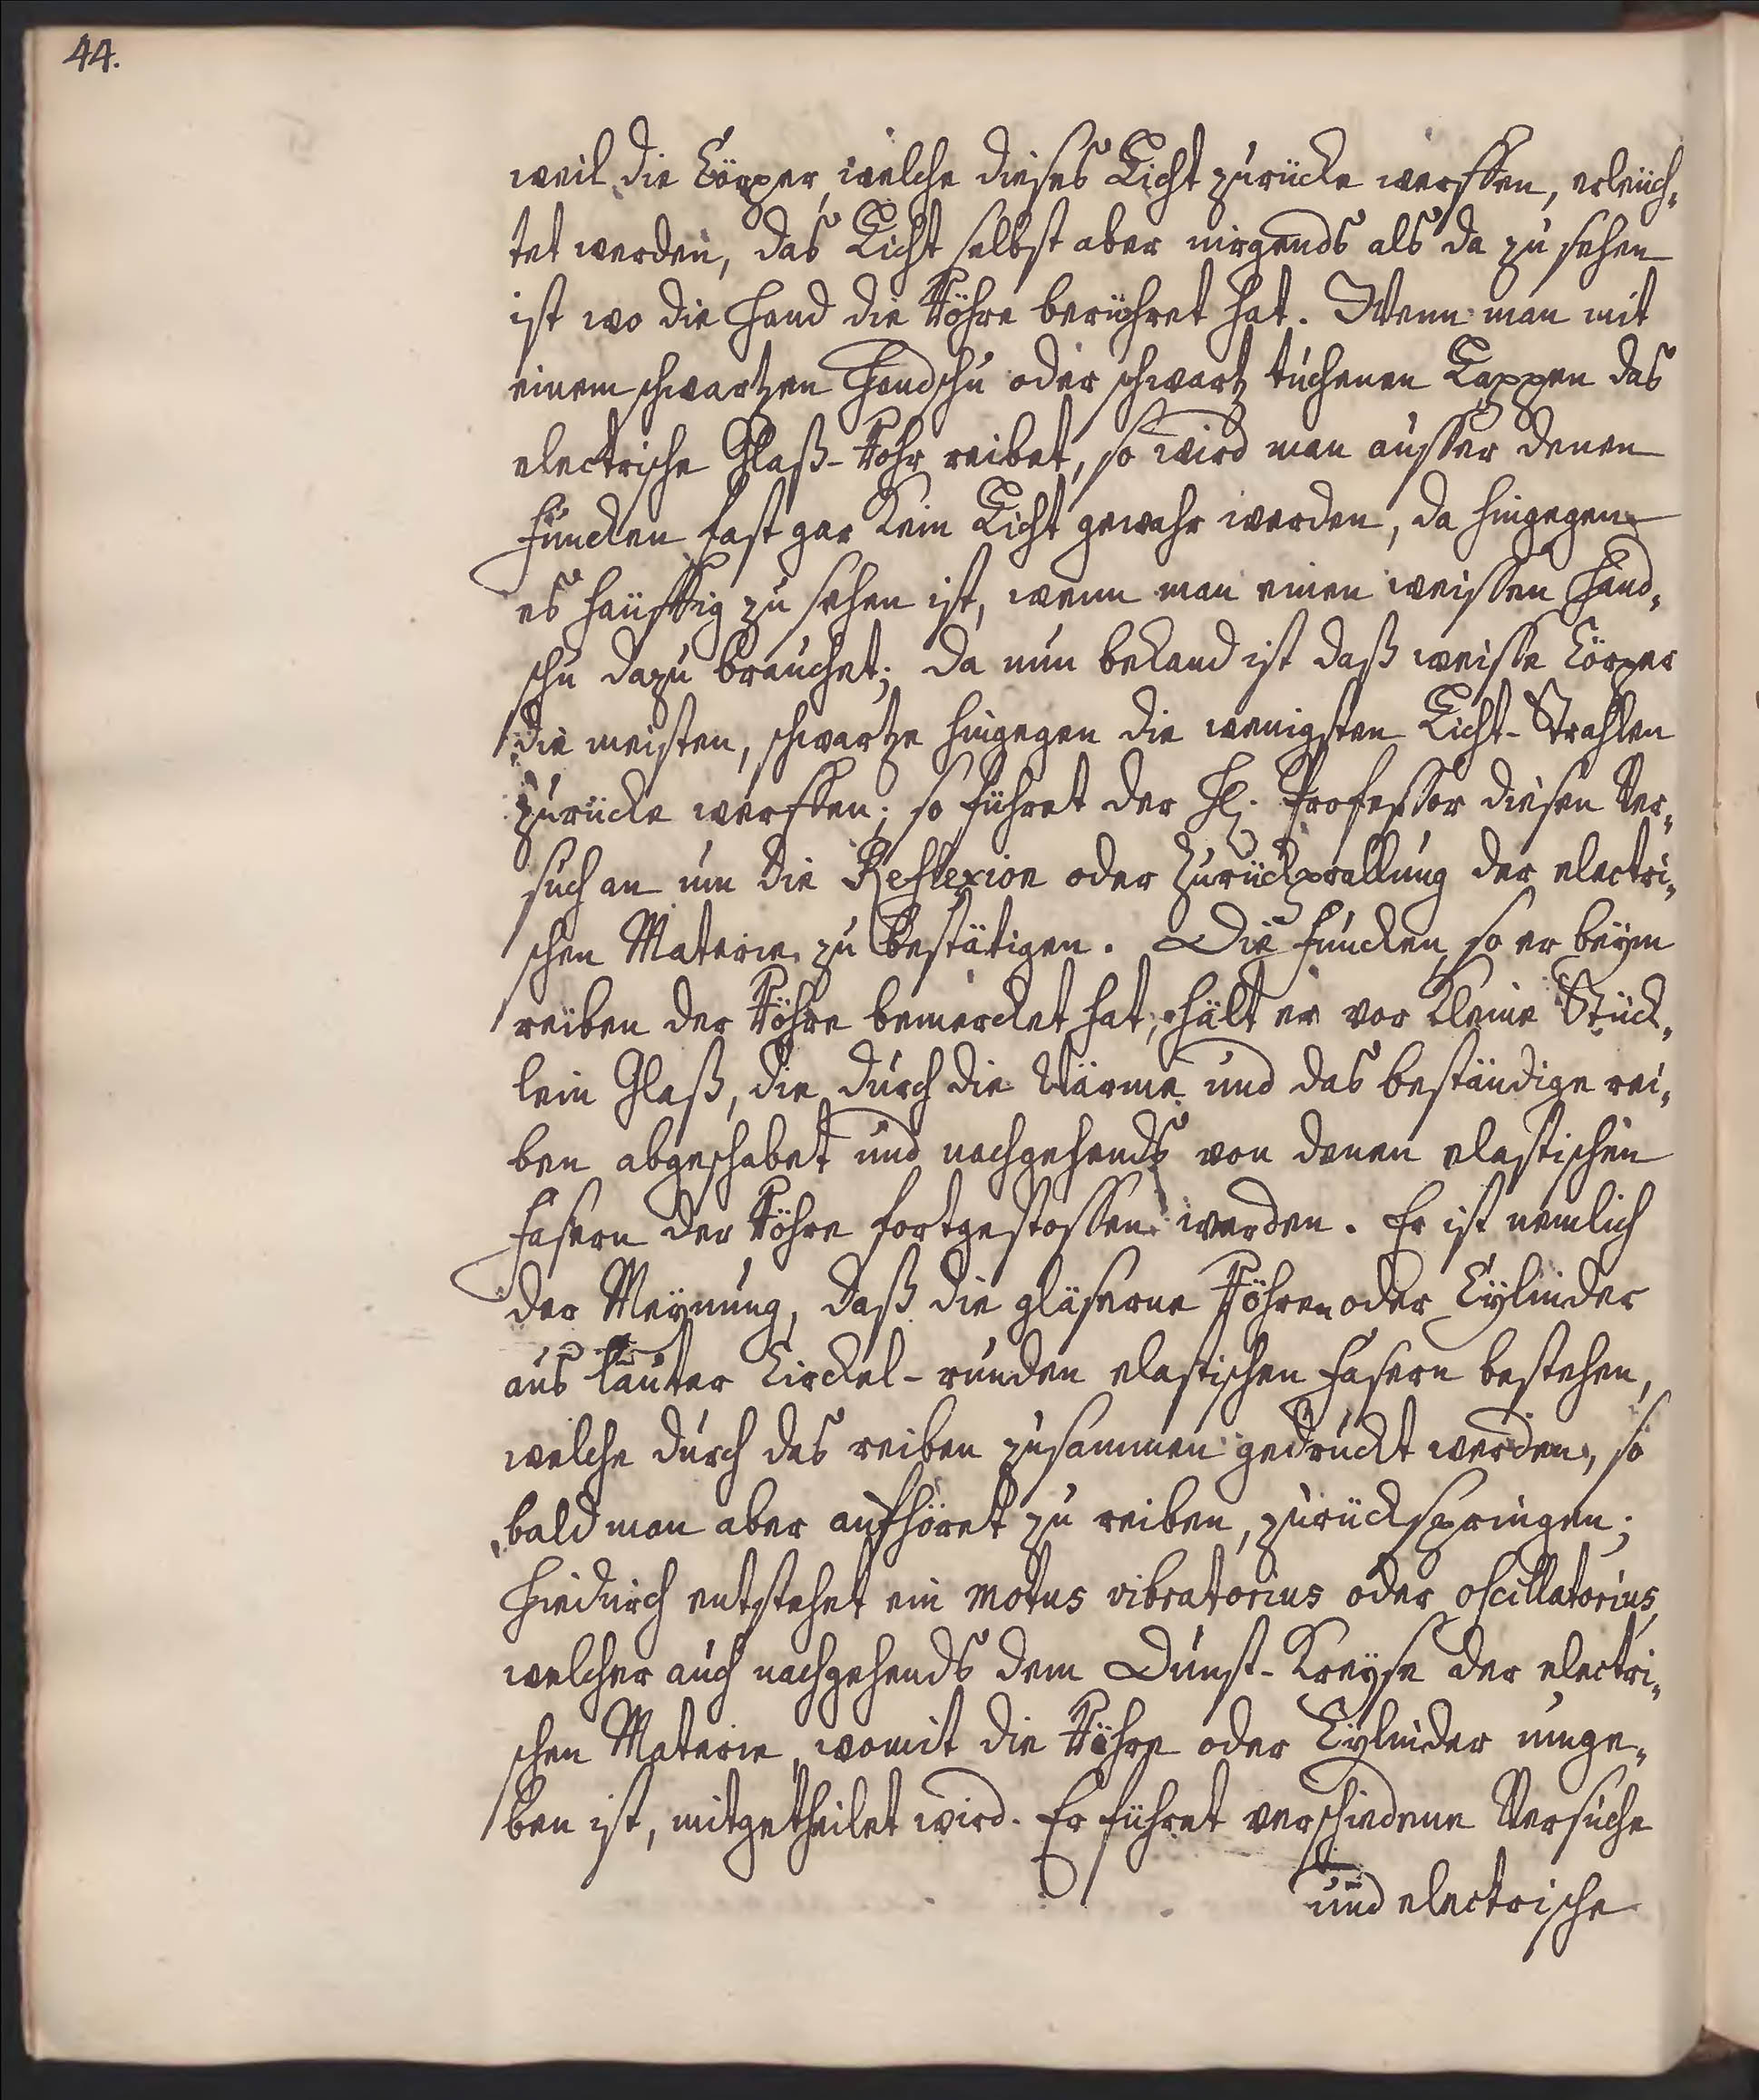 44.
weil die Cörper, welche dieses Licht zurücke werffen, erleüch„
tet werden, das Licht selbst aber nirgends als da zu sehen
ist wo die Hand die Röhre berühret hat. Wenn man mit
einem schwartzen Handschu oder schwartz tuchenen Lappen das
electrische Glaß-Rohr reibet, so wird man ausser denen
Funcken fast gar kein Licht gewahr werden, da hingegen
es häuffig zu sehen ist, wenn man einen weissen Hand„
schu dazu brauchet; da nun bekand ist daß weisse Cörper
die meisten, schwartze hingegen die wenigsten Licht-Strahlen
zurücke werffen; so führet der H. Professor diesen Ver„
such an um die Reflexion oder Zurückprallung der electri„
schen Materie zu bestätigen. Die Funcken, so er beÿm
reiben der Röhre bemercket hat, hält er vor kleine Stück„
lein Glaß, die durch die Wärme und das beständige rei„
ben abgeschabet und nachgehends von denen elastischen
Fasern der Röhre fortgestossen werden. Er ist nemlich
der Meÿnung, daß die gläserne Röhren oder Cÿlinder
aus lauter Circkel-runden elastischen Fasern bestehen,
welche durch das reiben zusammen gedruckt werden, so
bald man aber aufhöret zu reiben, zurückspringen;
Hiedurch entstehet ein motus vibratorius oder oscillatorius,
welcher auch nachgehends dem Dunst-Kreÿse der electri„
schen Materie, womit die Röhre oder Cÿlinder umge„
ben ist, mitgetheilet wird. Er führet verschiedene Versuche
und electrische